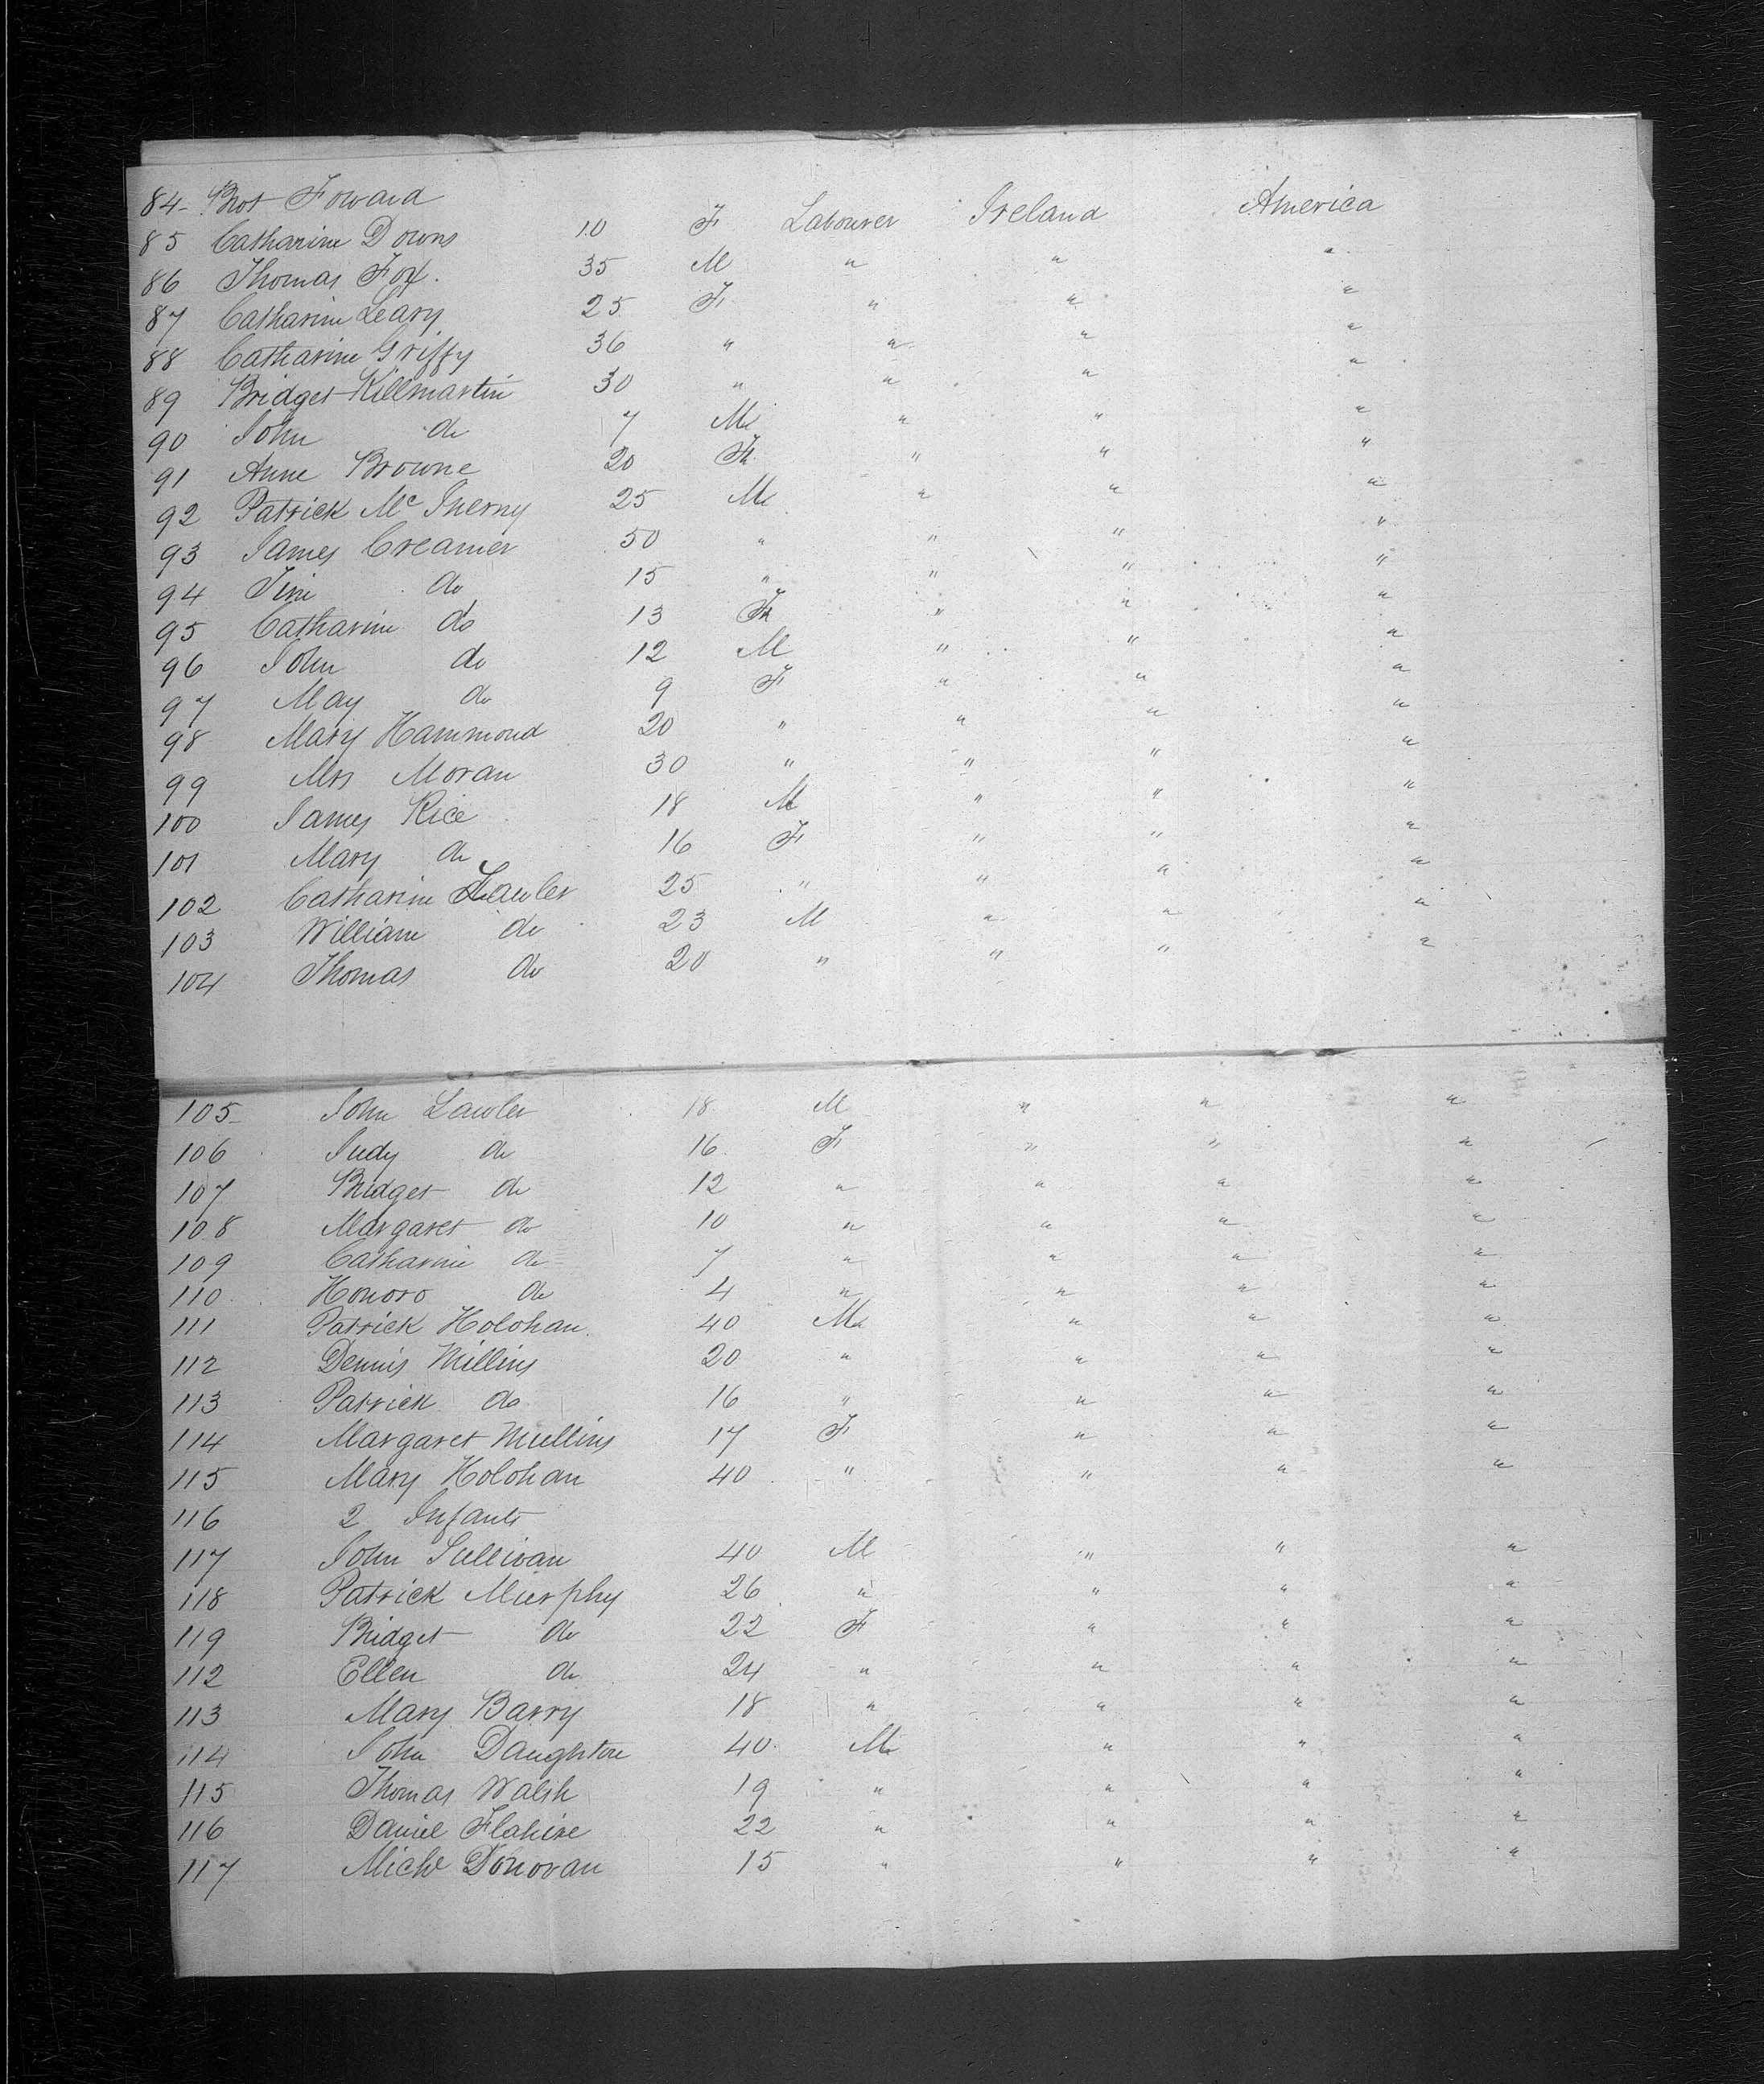 84- Brot Foward
85 Catharine Downs 10 F Labourer Ireland America
86 Thomas Fox. 35 M " " "
87 Catharine Leary 25 F " " "
88 Catharine Griffy 36 " " " "
89 Bridget Killmartin 30 " " " "
90 John do 7 M " " "
91 Anne Browne 20 F " " "
92 Patrick Mc Inerny 25 M " " "
93 James Creamer 50 " " " "
94 Jim do 15 " " " "
95 Catharine do 13 F " " "
96 John do 12 M " " "
97 May do 9 F " " "
98 Mary Hammond 20 " " " "
99 Mrs Moran 30 " " " "
100 James Rice 18 M " " "
101 Mary do 16 F " " "
102 Catharine Lawler 25 " " " "
103 William do 23 M " " "
104 Thomas do 20 " " " "
105- John Lawler 18 M " " "
106 Judy do 16 F " " "
107 Bridget do 12 " " " "
108 Margaret do 10 " " " "
109 Catharine do 7 " " " "
110 Honoro do 4 " " " "
111 Patrick Holohan 40 M " " "
112 Dennis Mullins 20 " " " "
113 Patrick do 16 " " " "
114 Margaret Mullins 17 F " " "
115 Mary Holohan 40 " " " "
116 2 Infants
117 John Sullivan 40 M " " "
118 Patrick Murphy 26 " " " "
119 Bridget do 22 F " " "
112 Ellen do 24 " " " "
113 Mary Barry 18 " " " "
114 John Daughton 40 M " " "
115 Thomas Walsh 19 " " " "
116 Daniel Flahive 22 " " " "
117 Michl Donovan 15 " " " "